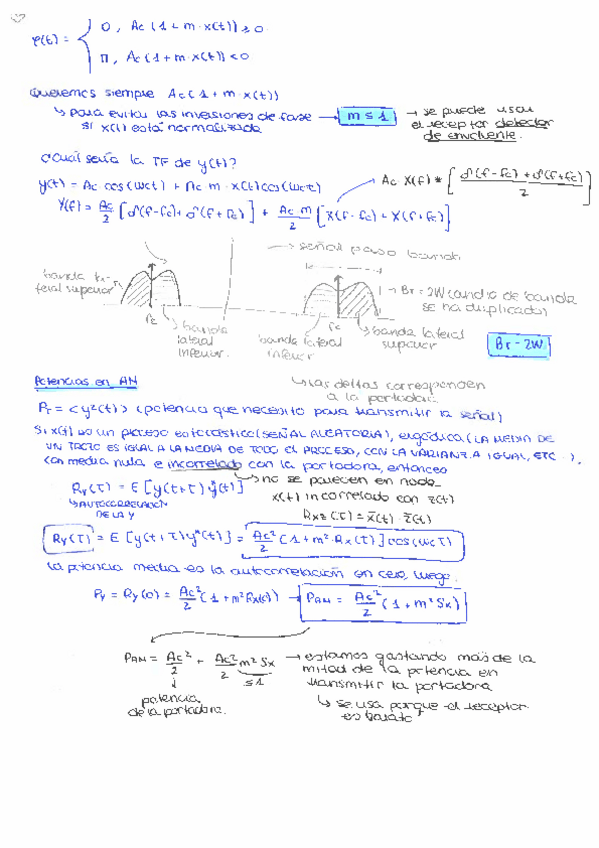 φ(t) = { 0, Ac(1+m·x(t)) ≥ 0
π, Ac(1+m·x(t)) < 0
Queremos siempre Ac(1+m·x(t))
↳ para evitar las inversiones de fase → m ≤ 1 → se puede usar
si x(t) está normalizada
el receptor detector
de envolvente.
¿Cuál sería la TF de y(t)?
y(t) = Ac cos(wct) + Ac m · x(t) cos(wct)
Ac X(f) * [ δ(f-fc) + δ(f+fc) / 2 ]
Y(f) = Ac/2 [δ(f-fc) + δ(f+fc)] + Ac m/2 [X(f-fc) + X(f+fc)]
→ señal paso banda
banda la-
teral superior
fc
banda
lateral
inferior.
banda lateral
inferior
fc
banda lateral
superior
→ Br = 2W (ancho de banda
se ha duplicado)
Br = 2W
↳ las deltas corresponden
a la portadora.
Potencias en AM
PT = <y²(t)> (potencia que necesito para transmitir la señal)
Si x(t) es un proceso estocástico (SEÑAL ALEATORIA), ergódica (LA MEDIA DE
UN TROZO ES IGUAL A LA MEDIA DE TODO EL PROCESO, CON LA VARIANZA IGUAL, ETC.),
con media nula e incorrelado con la portadora, entonces
↳ no se parecen en nada
Ry(τ) = E[y(t+τ) y*(t)]
x(t) incorrelado con z(t)
↳ AUTOCORRELACIÓN
DE LA Y
Rxz(τ) = x̄(t) · z̄(t)
Ry(τ) = E[y(t+τ)y*(t)] = Ac²/2 (1+m²·Rx(τ)] cos(wcτ)
La potencia media es la autocorrelación en cero, luego:
Py = Ry(0) = Ac²/2 (1+m²Rx(0)) → PAM = Ac²/2 (1+m²Sx)
PAM = Ac²/2 + Ac²/2 m²Sx → estamos gastando más de la
≤1
mitad de la potencia en
transmitir la portadora
potencia
de la portadora.
↳ se usa porque el receptor
es barato